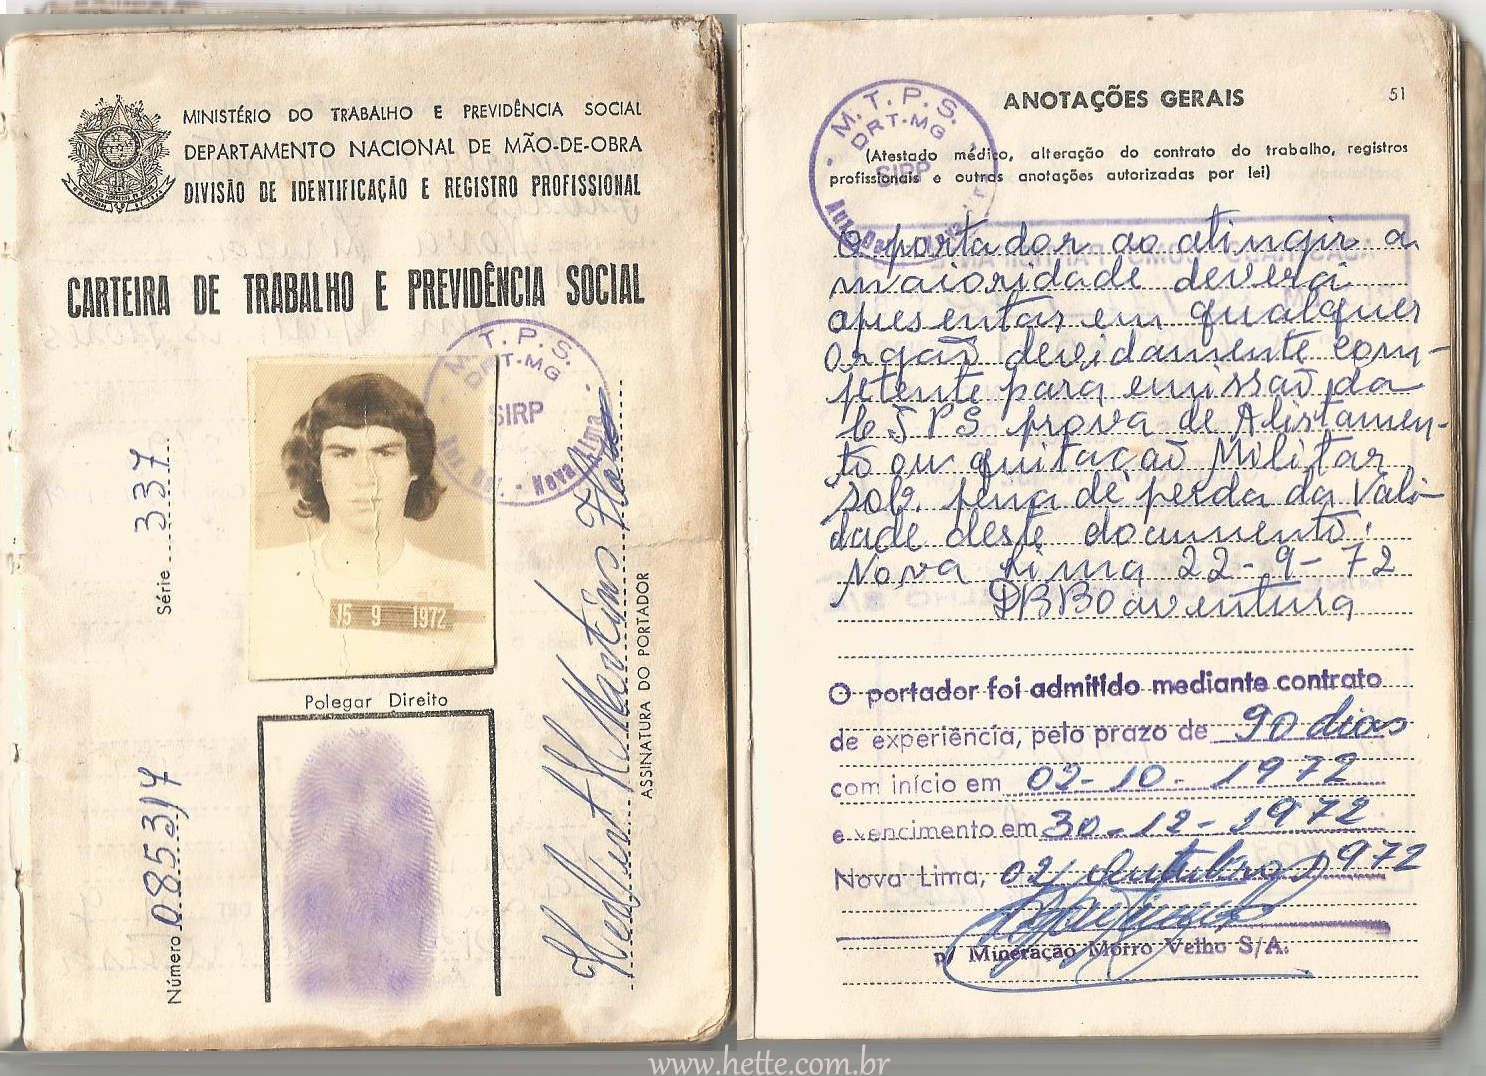 MINISTÉRIO DO TRABALHO E PREVIDÊNCIA SOCIAL
DEPARTAMENTO NACIONAL DE MÃO-DE-OBRA
DIVISÃO DE IDENTIFICAÇÃO E REGISTRO PROFISSIONAL
CARTEIRA DE TRABALHO E PREVIDÊNCIA SOCIAL
M.T.P.S.
DRT-MG
SIRP
Nova Lima
15 9 1972
Série 337
Número 085314
Polegar Direito
Martins
ASSINATURA DO PORTADOR
51
ANOTAÇÕES GERAIS
(Atestado médico, alteração do contrato do trabalho, registros
profissionais e outras anotações autorizadas por lei)
M.T.P.S.
DRT-MG
SIRP
O portador ao atingir a
maioridade deverá
apresentar em qualquer
orgão devidamente com-
petente para emissão da
CTPS prova de Alistamen-
to ou quitação Militar
sob. pena de perda da Vali-
dade deste documento.
Nova Lima 22-9-72
DBBoaventura
O portador foi admitido mediante contrato
de experiência, pelo prazo de 90 dias
com início em 02-10-1972
e vencimento em 30-12-1972
Nova Lima, 02/ Outubro 1972
p/ Mineração Morro Velho S/A.
www.hette.com.br